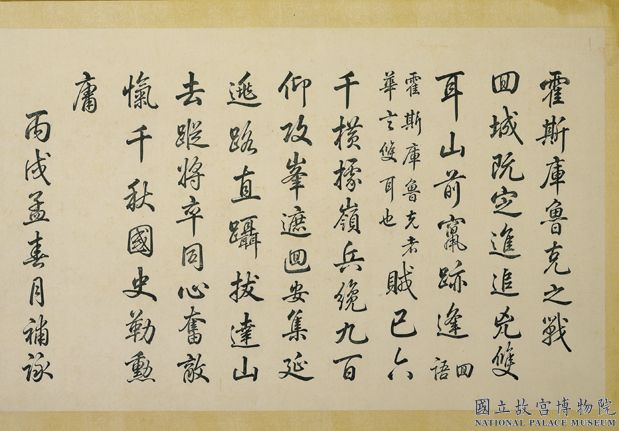 霍斯庫魯克之戰
回城既定進追兇雙
耳山前竄跡逢回語
霍斯庫魯克者
華言雙耳也賊已六
千橫據嶺兵纔九百
仰攻峯遮回安集延
逃路直躡拔達山
去蹤將卒同心奮敵
愾千秋國史勒勳
庸
丙戌孟春月補詠
國立故宮博物院
NATIONAL PALACE MUSEUM